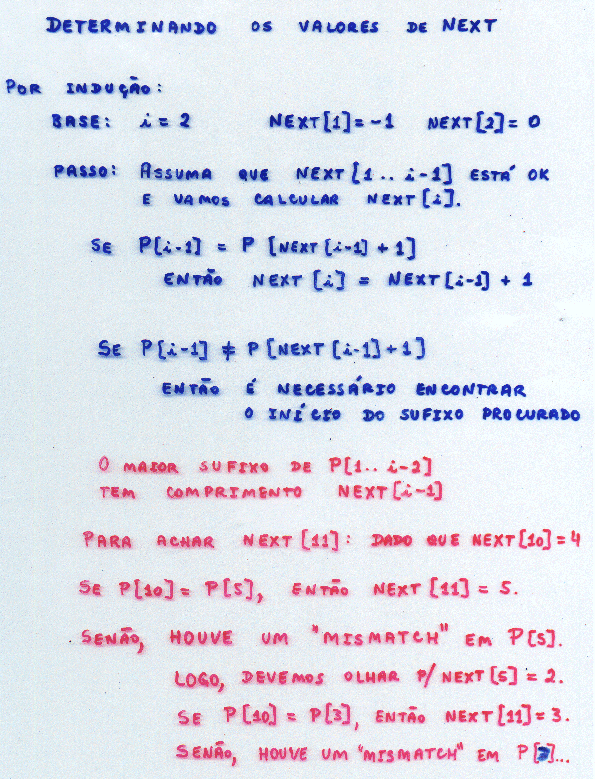 DETERMINANDO OS VALORES DE NEXT
POR INDUÇÃO:
BASE: i = 2 NEXT[1] = -1 NEXT[2] = 0
PASSO: ASSUMA QUE NEXT[1.. i-1] ESTÁ OK
E VAMOS CALCULAR NEXT[i].
SE P[i-1] = P [NEXT[i-1] + 1]
ENTÃO NEXT [i] = NEXT[i-1] + 1
SE P[i-1] ≠ P[NEXT[i-1]+1]
ENTÃO É NECESSÁRIO ENCONTRAR
O INÍCIO DO SUFIXO PROCURADO
O MAIOR SUFIXO DE P[1.. i-2]
TEM COMPRIMENTO NEXT[i-1]
PARA ACHAR NEXT[11]: DADO QUE NEXT[10]=4
SE P[10] = P[5], ENTÃO NEXT[11] = 5.
SENÃO, HOUVE UM "MISMATCH" EM P[5].
LOGO, DEVEMOS OLHAR P/ NEXT[5] = 2.
SE P[10] = P[3], ENTÃO NEXT[11]=3.
SENÃO, HOUVE UM "MISMATCH" EM P[3]...